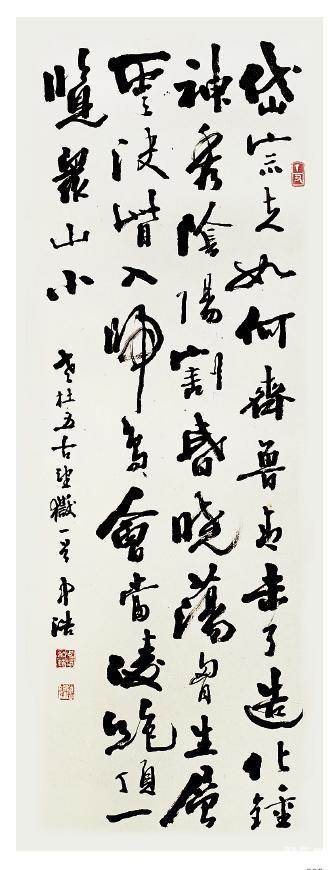 岱宗夫如何齊魯青未了造化鍾
神秀陰陽割昏曉蕩胸生層
雲決眥入歸鳥會當凌絕頂一
覽眾山小
老杜五古望嶽一首 浩